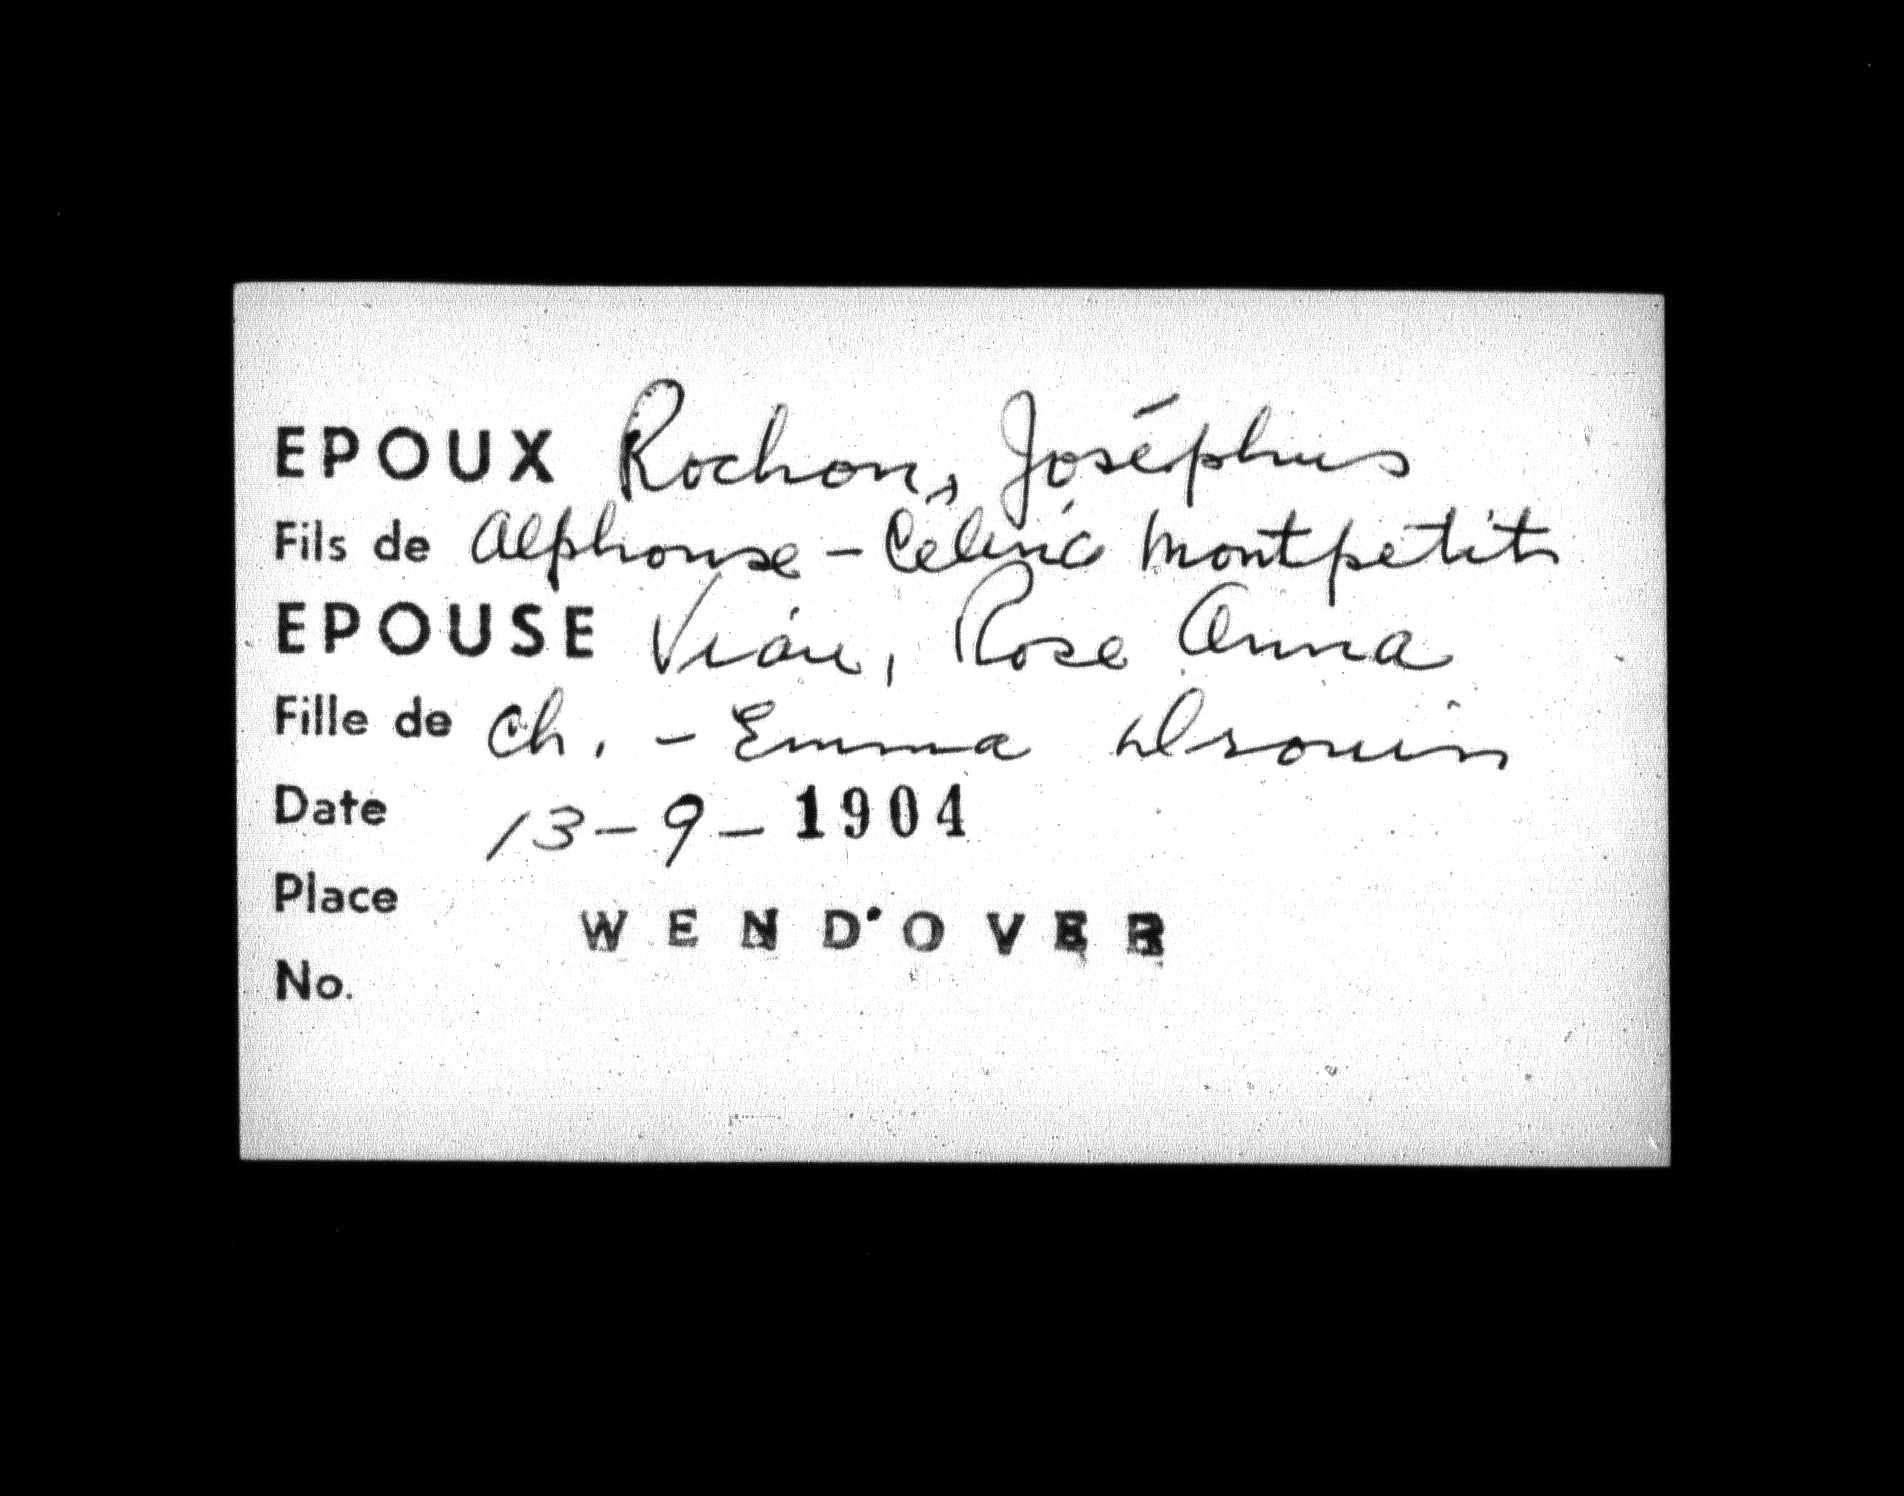 EPOUX Rochon, Joséphus
Fils de Alphonse - Célina Montpetit
EPOUSE Viau, Rose Anna
Fille de Ch. - Emma Drouin
Date 13-9-1904
Place WENDOVER
No.